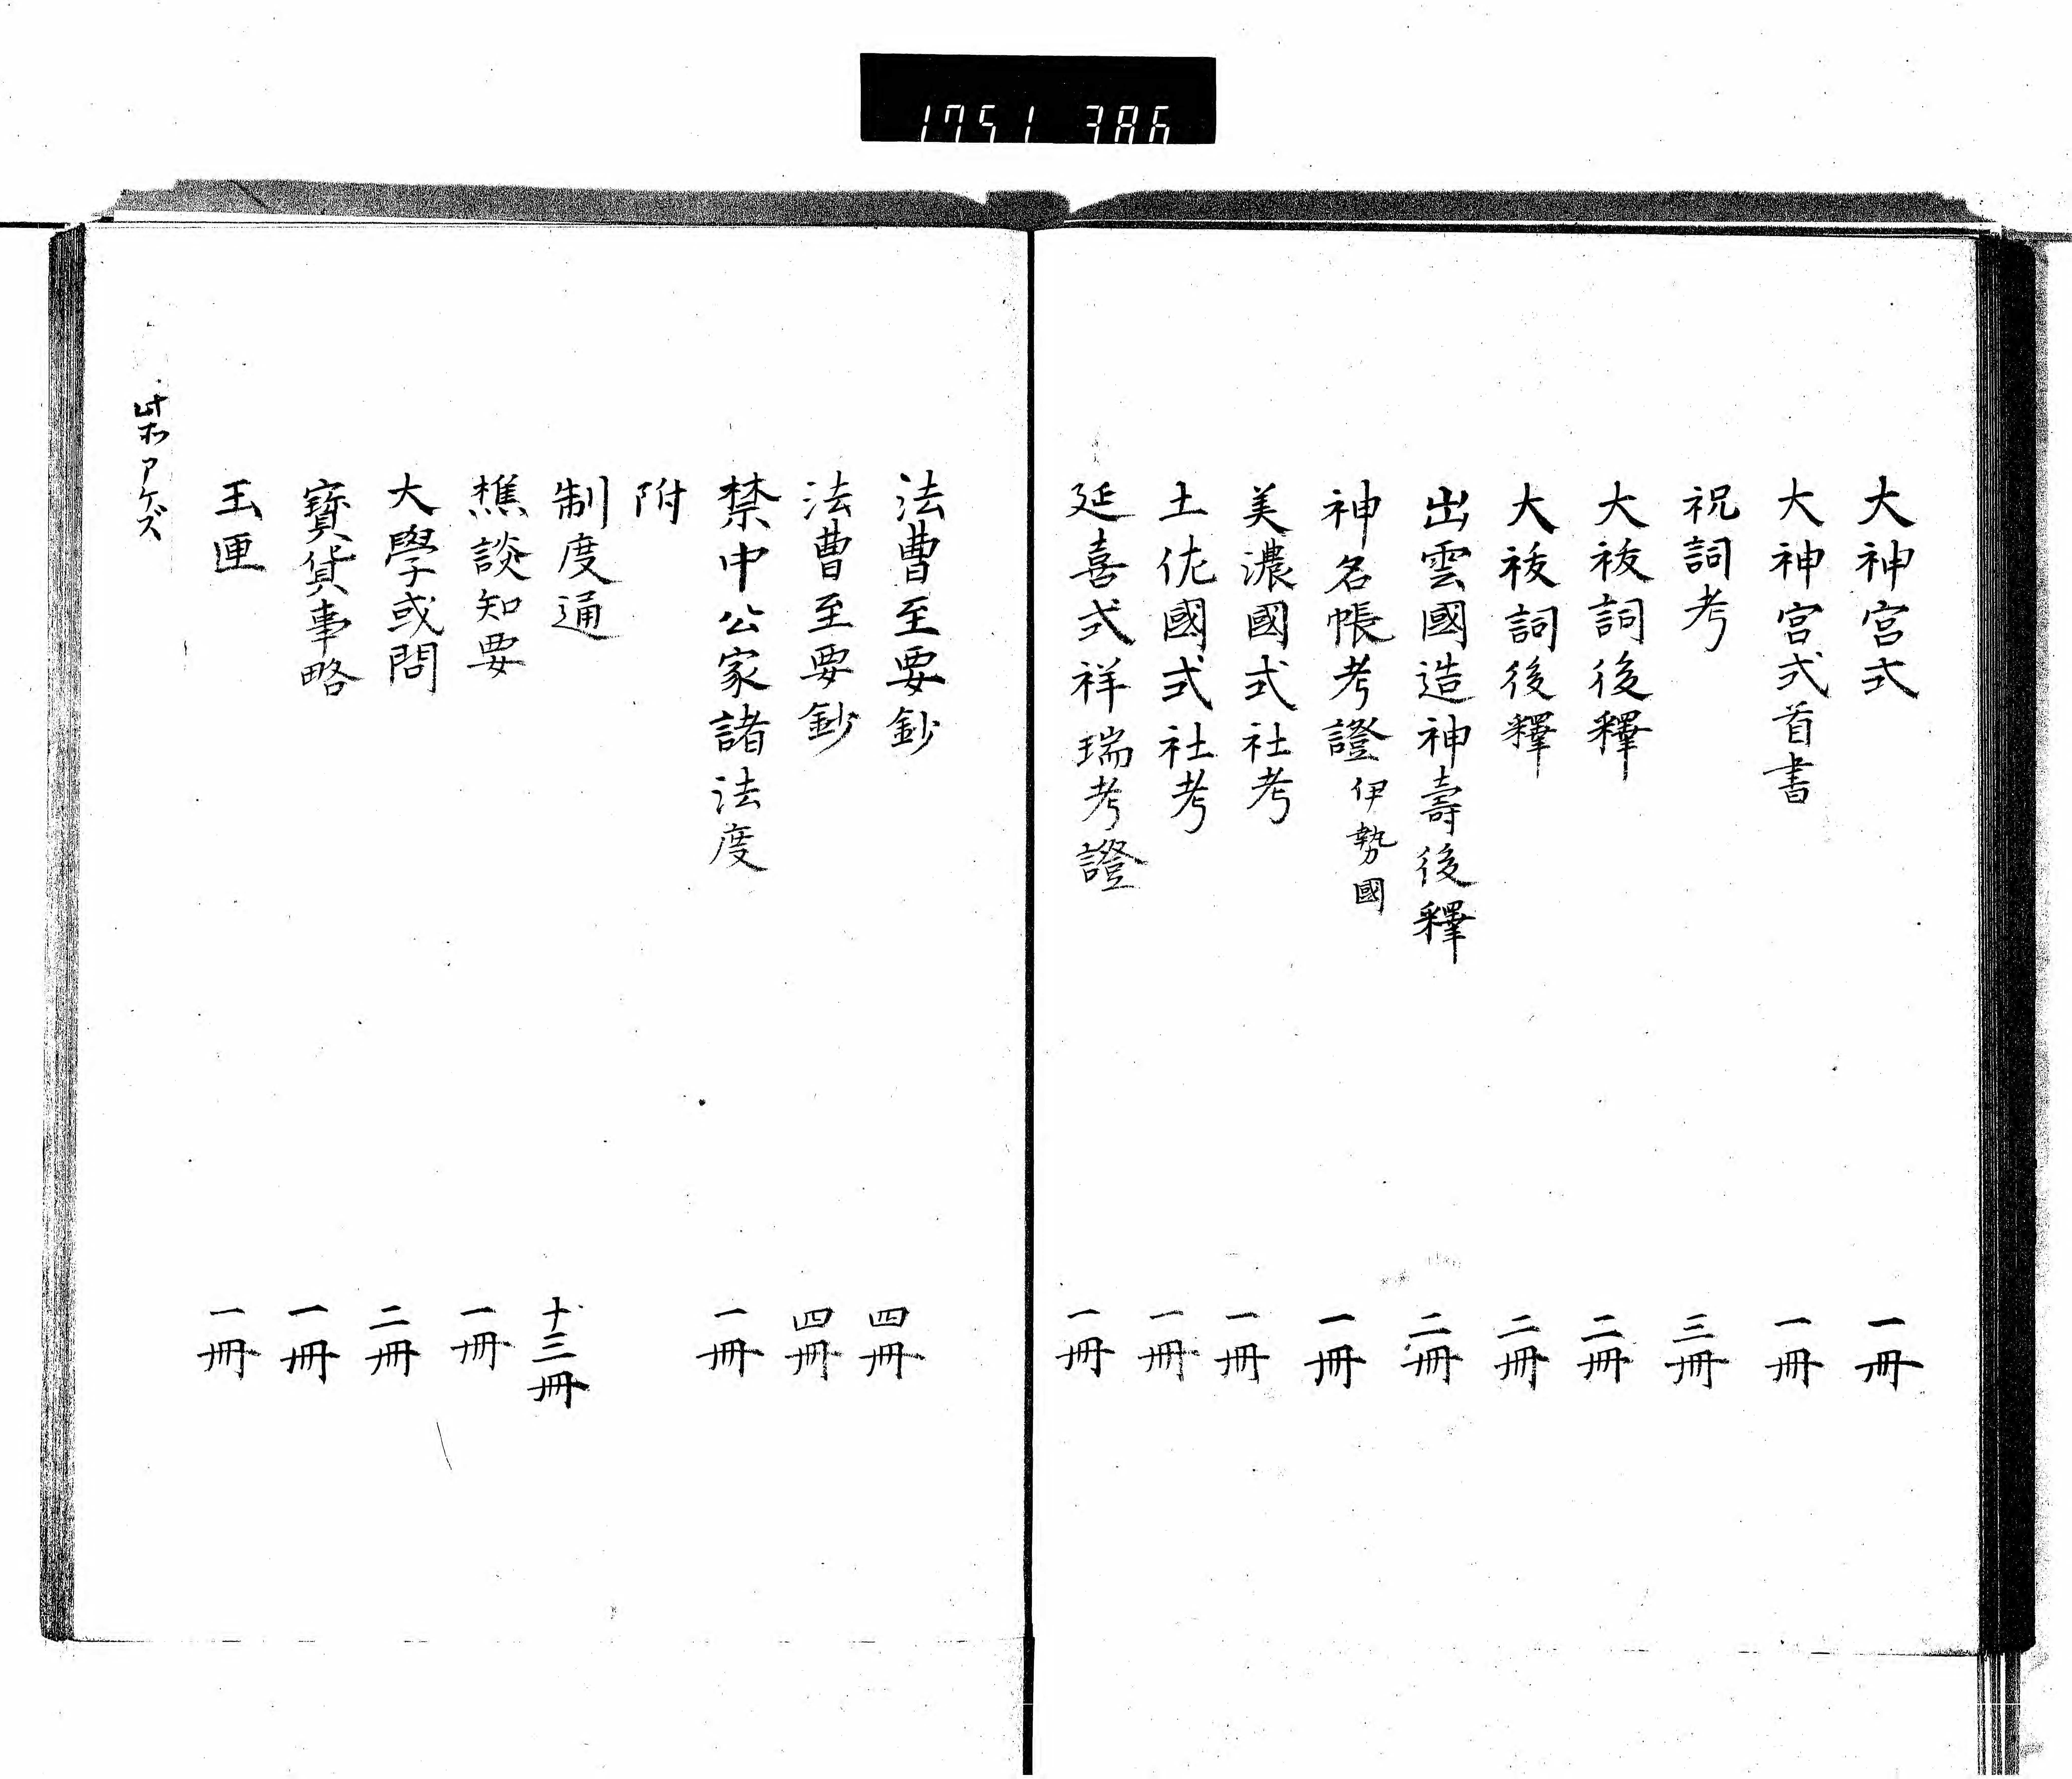 1751 386
大神宮式 一冊
大神宮式首書 一冊
祝詞考 三冊
大祓詞後釋 二冊
大祓詞後釋 二冊
出雲國造神壽後釋 二冊
神名帳考證 伊勢國 一冊
美濃國式社考 一冊
土佐國式社考 一冊
延喜式祥瑞考證 一冊
法曹至要鈔 四冊
法曹至要鈔 四冊
禁中公家諸法度 一冊
附
制度通 十三冊
樵談知要 一冊
大學或問 二冊
寳貨事略 一冊
玉匣 一冊
アケズ